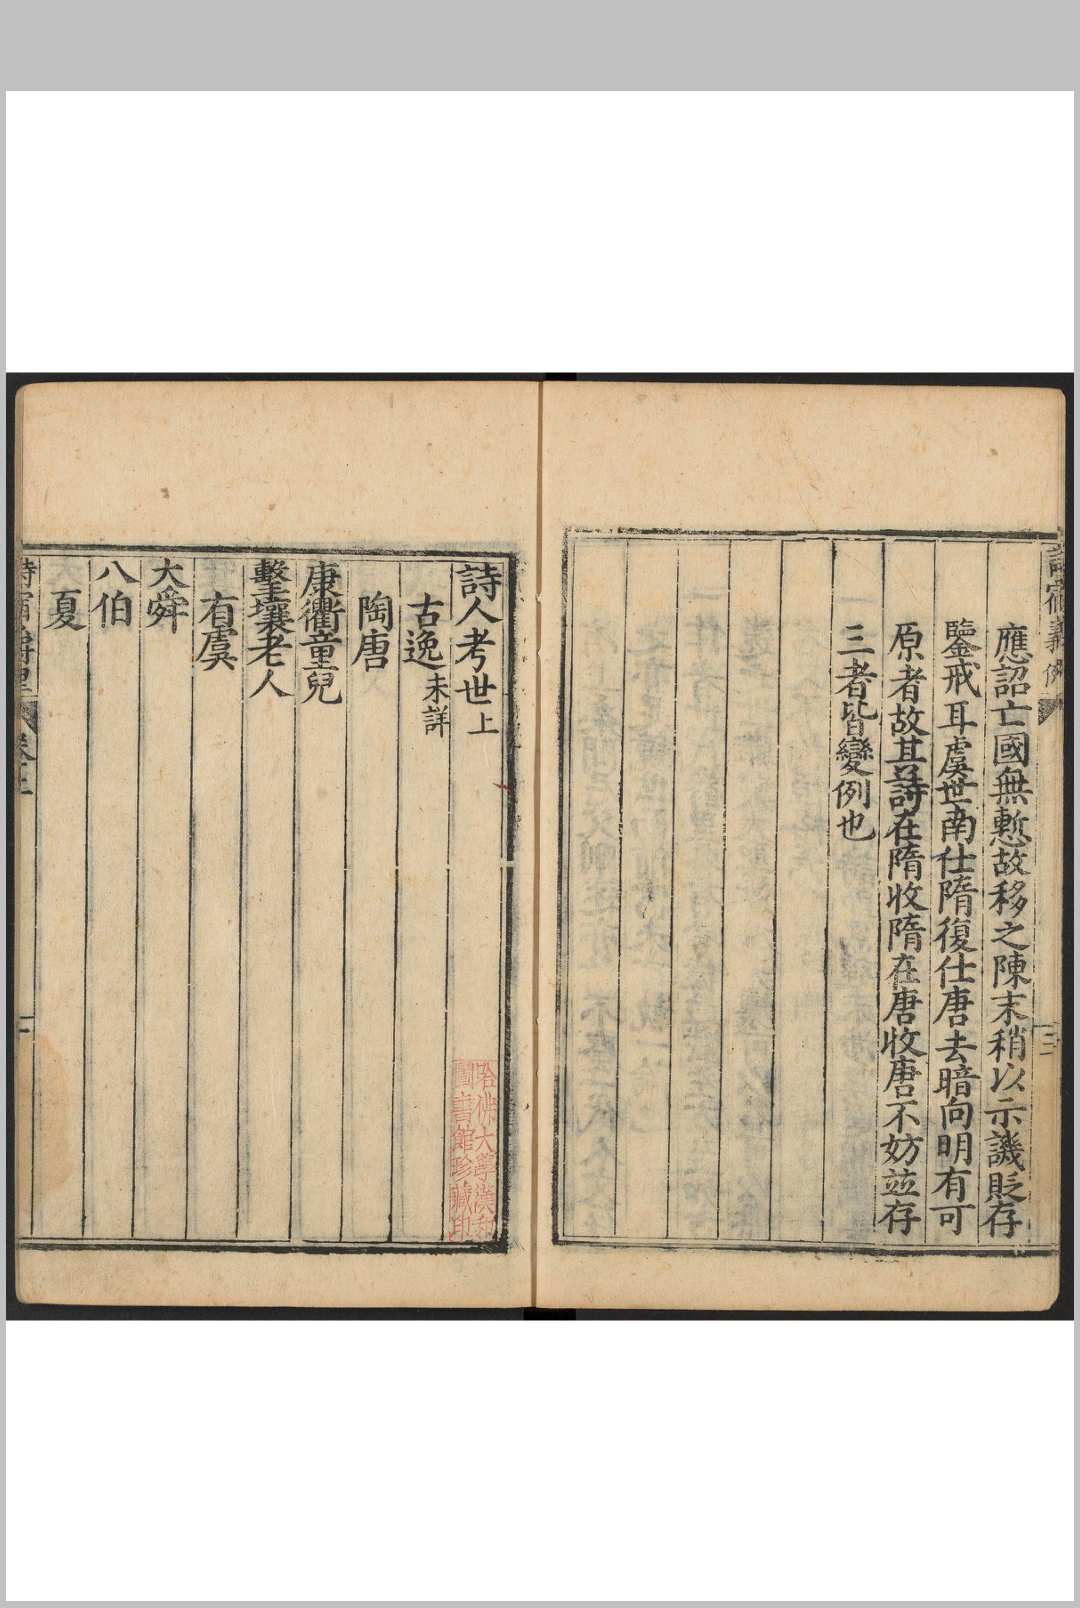 應詔亡國無慙故移之陳末稍以示譏貶存
鑒戒耳虞世南仕隋復仕唐去暗向明有可
原者故其詩在隋收隋在唐收唐不妨並存
三者皆變例也
詩人考世上
古逸未詳
陶唐
康衢童兒
擊壤老人
有虞
大舜
八伯
夏
哈佛大學漢和
圖書館珍藏印